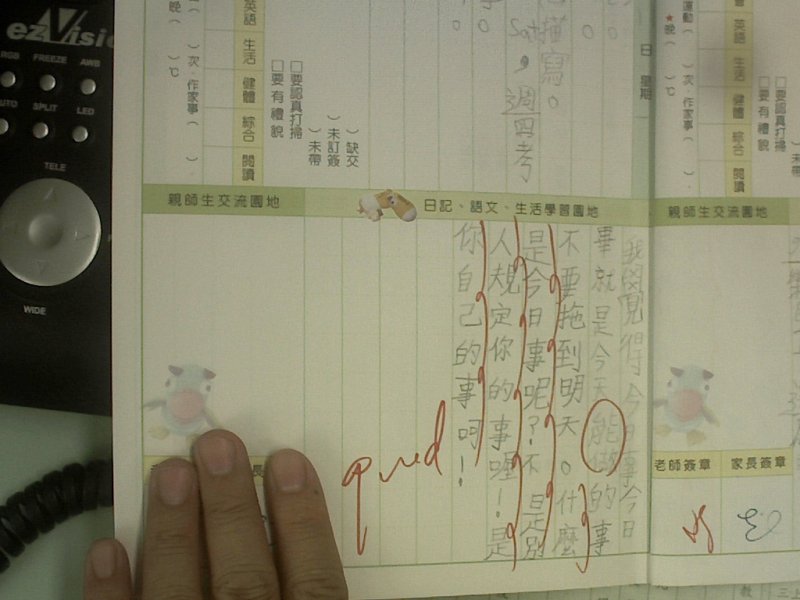 ezVision
RGB
FREEZE
AWB
AUTO
SPLIT
LED
TELE
WIDE
晚
英語
生活
健體
綜合
閱讀
）次
作家事（
）℃
□要認真打掃
□要有禮貌
）缺交
）未訂簽
）未帶
描寫。
Sat
，週四考
日 星期
運動（
★晚（
英語
生活
健體
綜合
閱讀
）次
作家事（
）℃
□要認真打掃
□要有禮貌
）未帶
親師生交流園地
日記、語文、生活學習園地
親師生交流園地
我覺得今日事今日
畢就是今天能做的事
不要拖到明天。什麼
是今日事呢？不是別
人規定你的事喔！是
你自己的事呵！
good
老師簽章
家長簽章